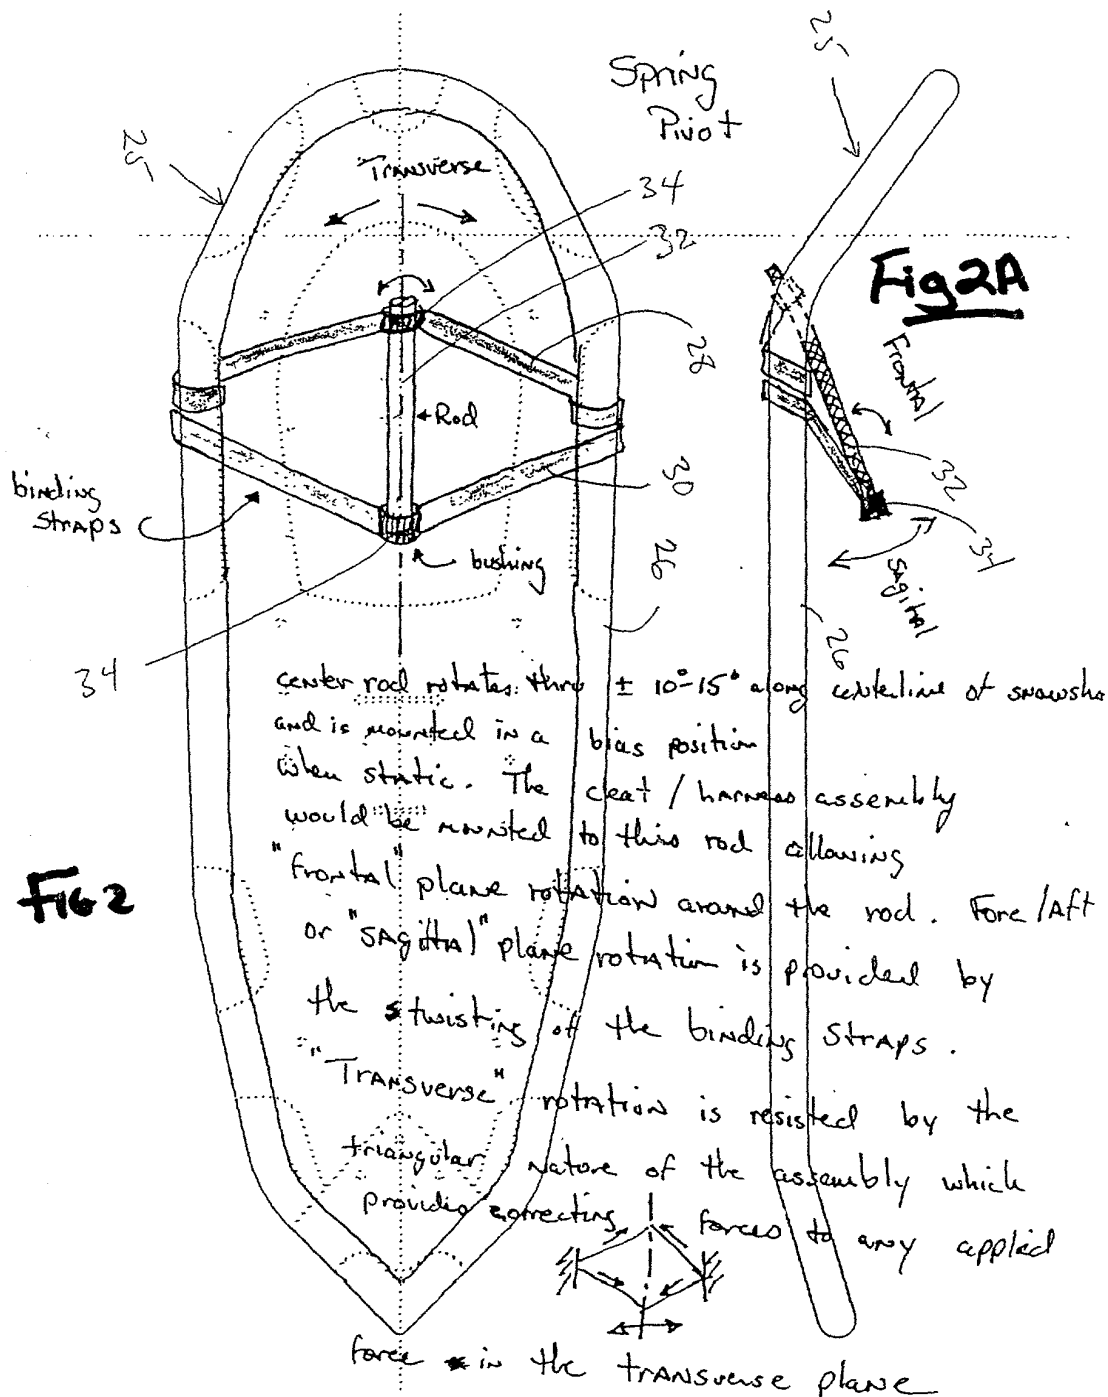 Spring
Pivot
25
25
Transverse
34
32
Fig 2A
28
Frontal
Rod
30
32
binding
straps
26
34
bushing
Sagital
26
34
center rod rotates thru ± 10°-15° along centerline of snowsho
and is mounted in a bias position
when static. The cleat / harness assembly
would be mounted to this rod allowing
"frontal" plane rotation around the rod. Fore/Aft
FIG 2
or "sagittal" plane rotation is provided by
the twisting of the binding straps.
"Transverse" rotation is resisted by the
triangular nature of the assembly which
provides correcting forces to any applied
force in the transverse plane